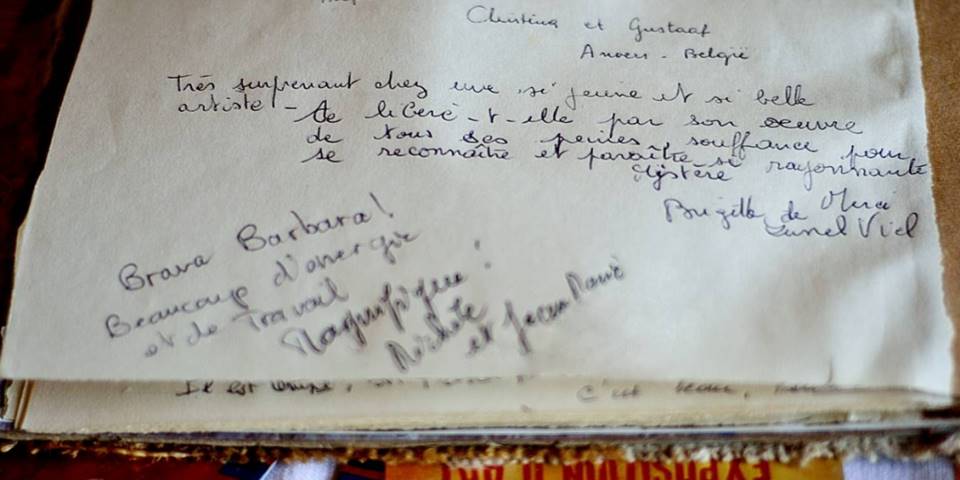 Christina et Gustaaf
Anvers - België
Très surprenant chez une si jeune et si belle
artiste - Se libère-t-elle par son oeuvre
de tous ses peines, souffance pour
se reconnaître et paraître si rayonnante
Mystère
Brigitte de
Lunel Viel
Brava Barbara!
Beaucoup d'energie
et de Travail
Magnifique!
Michèle
et Jean Marie
Il est
C'est beau,
EXPOSITION D'ART